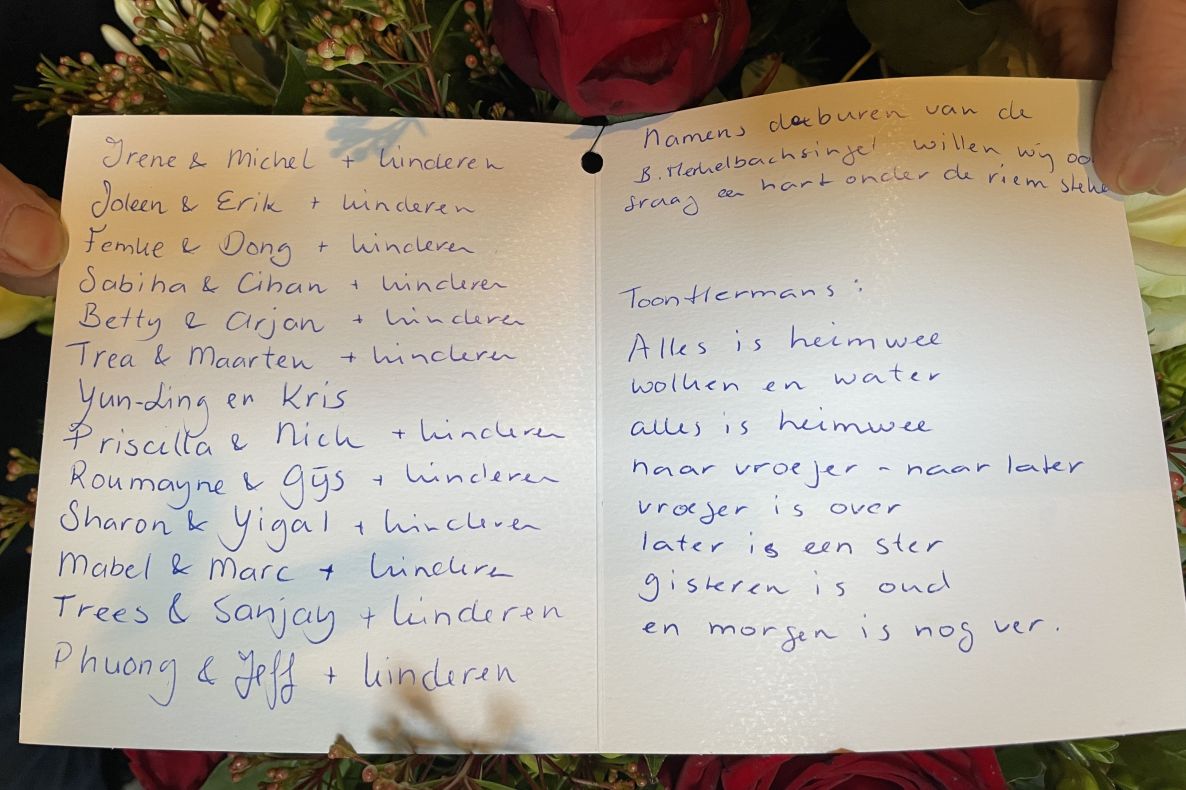 Irene & Michel + kinderen
Joleen & Erik + kinderen
Femke & Dong + kinderen
Sabiha & Cihan + kinderen
Betty & Arjan + kinderen
Trea & Maarten + kinderen
Yun-Ling en Kris
Priscilla & Nick + kinderen
Roumayne & Gijs + kinderen
Sharon & Yigal + kinderen
Mabel & Marc + kinderen
Trees & Sanjay + kinderen
Phuong & Jeff + kinderen
Namens de buren van de
B. Merkelbachsingel willen wij
graag een hart onder de riem
Toon Hermans:
Alles is heimwee
wolken en water
alles is heimwee
naar vroeger - naar later
vroeger is over
later is een ster
gisteren is oud
en morgen is nog ver.